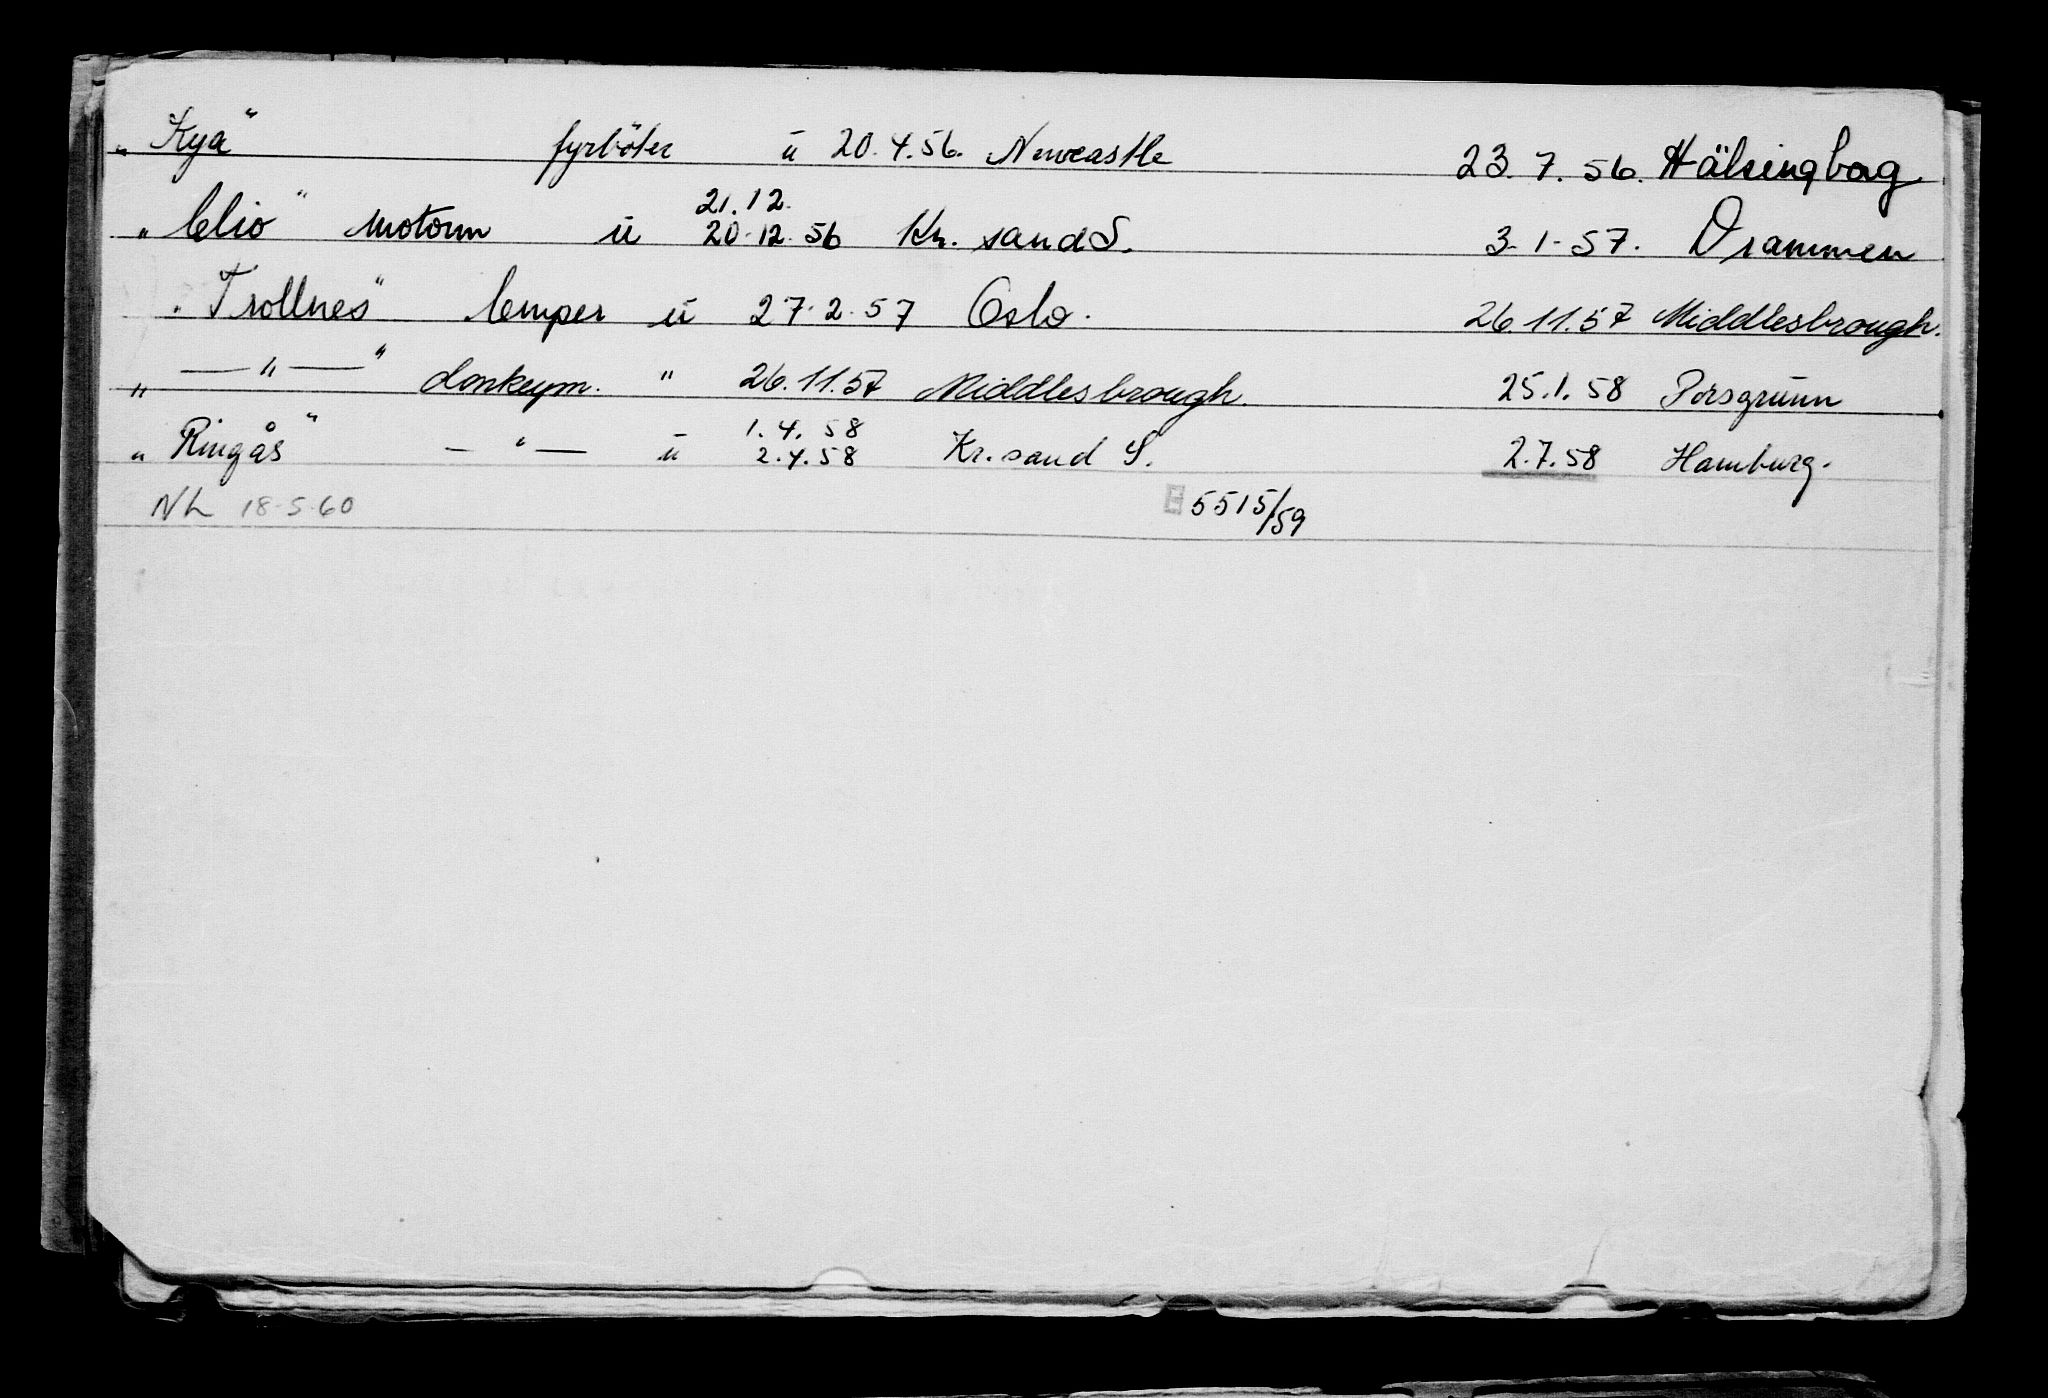 „Kya“ fyrböter u 20.4.56. Newcastle 23.7.56. Hälsingborg
„Clio“ motorm u 21.12. 20-12.56 Kr. sand S. 3-1-57. Drammen
„Trollnes“ lemper u 27.2.57 Oslo. 26.11.57 Middlesbrough.
„—"—“ donkeym. " 26.11.57 Middlesbrough. 25.1.58 Porsgrunn
„Ringås“ —"— u 1.4.58 2.4.58 Kr.sand S. 2.7.58 Hamburg.
NL 18-5-60 5515/59